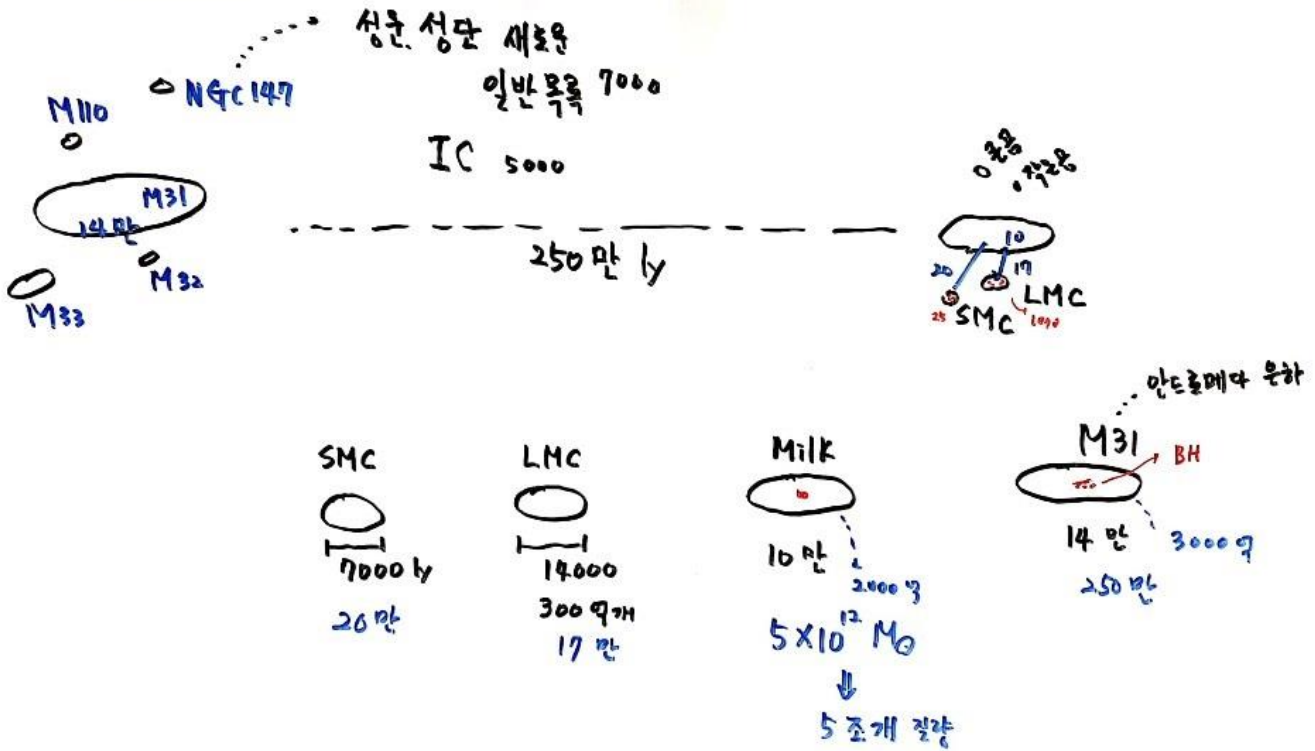 성운. 성단 새로운
일반목록 7000
NGC 147
M110
IC 5000
M31
14만
M32
M33
250만 ly
큰곰
작은곰
10
20
17
LMC
SMC
25
안드로메다 은하
SMC
7000 ly
20만
LMC
14000
300억개
17만
Milk
10만
2000억
5×10¹² M⊙
⇓
5조개 질량
M31
BH
14만
3000억
250만